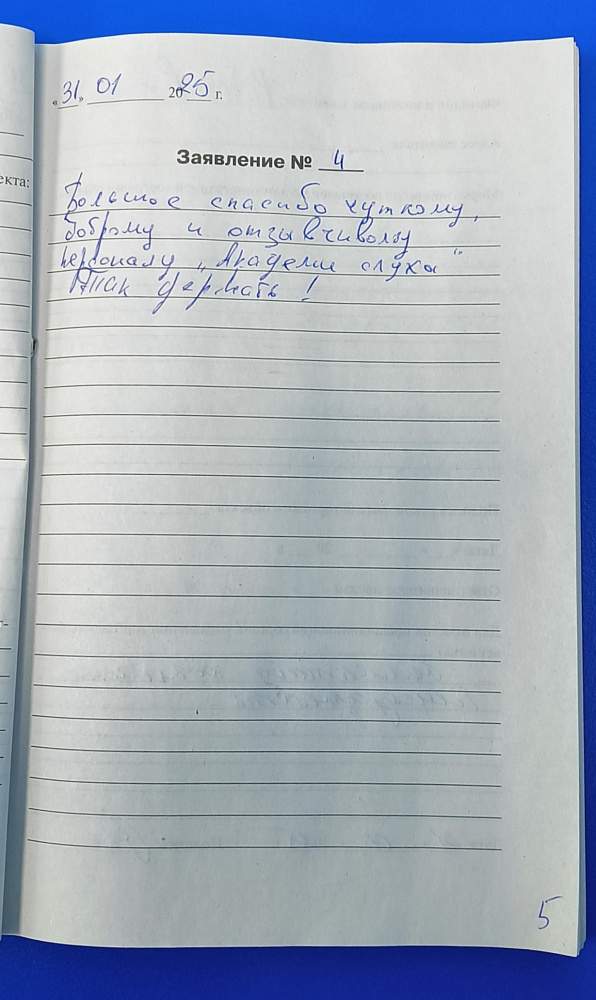 «31» 01 2025 г.
екта:
Заявление № 4
Большое спасибо чуткому,
доброму и отзывчивому
персоналу „Академии слуха“
Так держать!
5